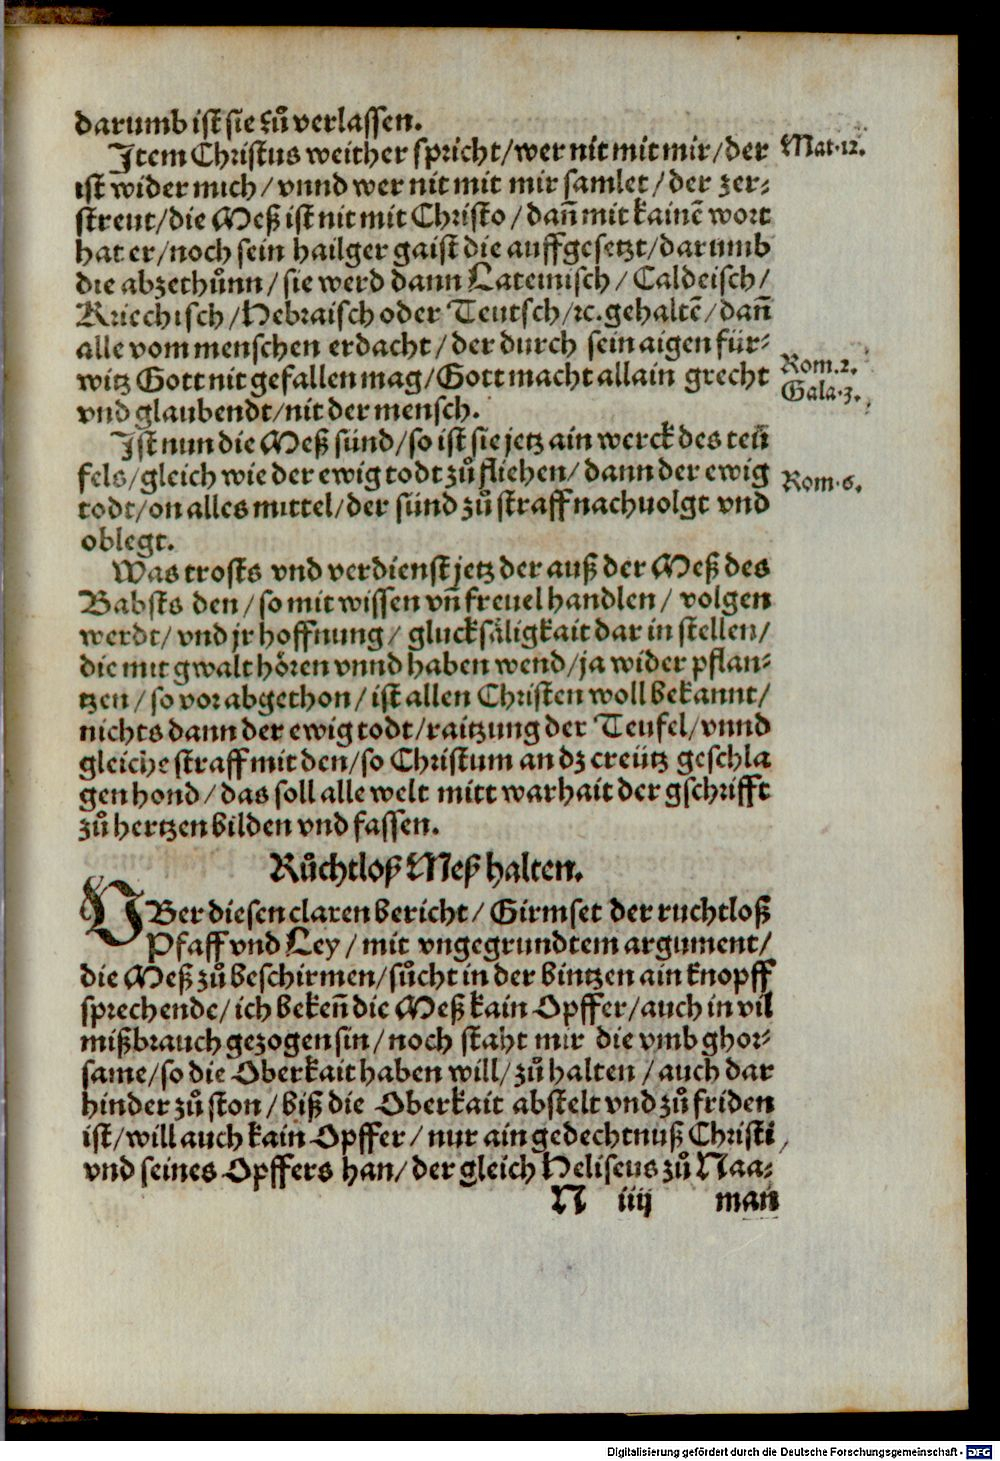 darumb ist sie zů verlassen.
Item Christus weither spricht/wer nit mit mir/der
ist wider mich/vnnd wer nit mit mir samlet/der zer-
streut/die Meß ist nit mit Christo/dañ mit kainē wort
hat er/noch sein hailger gaist die auffgesetzt/darumb
die abzethůnn/sie werd dann Lateinisch/Caldeisch/
Kriechisch/Hebraisch oder Teutsch/rc. gehaltē/dañ
alle vom menschen erdacht/der durch sein aigen für-
witz Gott nit gefallen mag/Gott macht allain grecht
vnd glaubendt/nit der mensch.
Mat.12.
Rom.2.
Gala.3.
Ist nun die Meß sünd/so ist sie jetz ain werck des teü
fels/gleich wie der ewig todt zů fliehen/dann der ewig
todt/on alles mittel/der sünd zů straff nachuolgt vnd
oblegt.
Rom.6.
Was trosts vnd verdienst jetz der auß der Meß des
Babsts den/so mit wissen vñ freuel handlen/volgen
werdt/vnd jr hoffnung/glucksäligkait dar in stellen/
die mit gwalt hören vnnd haben wend/ja wider pflan-
tzen/so vor abgethon/ist allen Christen woll bekannt/
nichts dann der ewig todt/raitzung der Teufel/vnnd
gleiche straff mit den/so Christum an dz creütz geschla
gen hond/das soll alle welt mitt warhait der gschrifft
zů hertzen bilden vnd fassen.
Růchtloß Meß halten.
VBer diesen claren bericht/Girmset der ruchtloß
Pfaff vnd Ley/mit vngegrundtem argument/
die Meß zů beschirmen/sůcht in der bintzen ain knopff
sprechende/ich bekeñ die Meß kain Opffer/auch in vil
mißbrauch gezogen sin/noch staht mir die vmb ghor-
same/so die Oberkait haben will/zů halten/auch dar
hinder zů ston/biß die Oberkait abstelt vnd zů friden
ist/will auch kain Opffer/nur ain gedechtnuß Christi/
vnd seines Opffers han/der gleich Heliseus zů Naa-
N iiij man
Digitalisierung gefördert durch die Deutsche Forschungsgemeinschaft - DFG